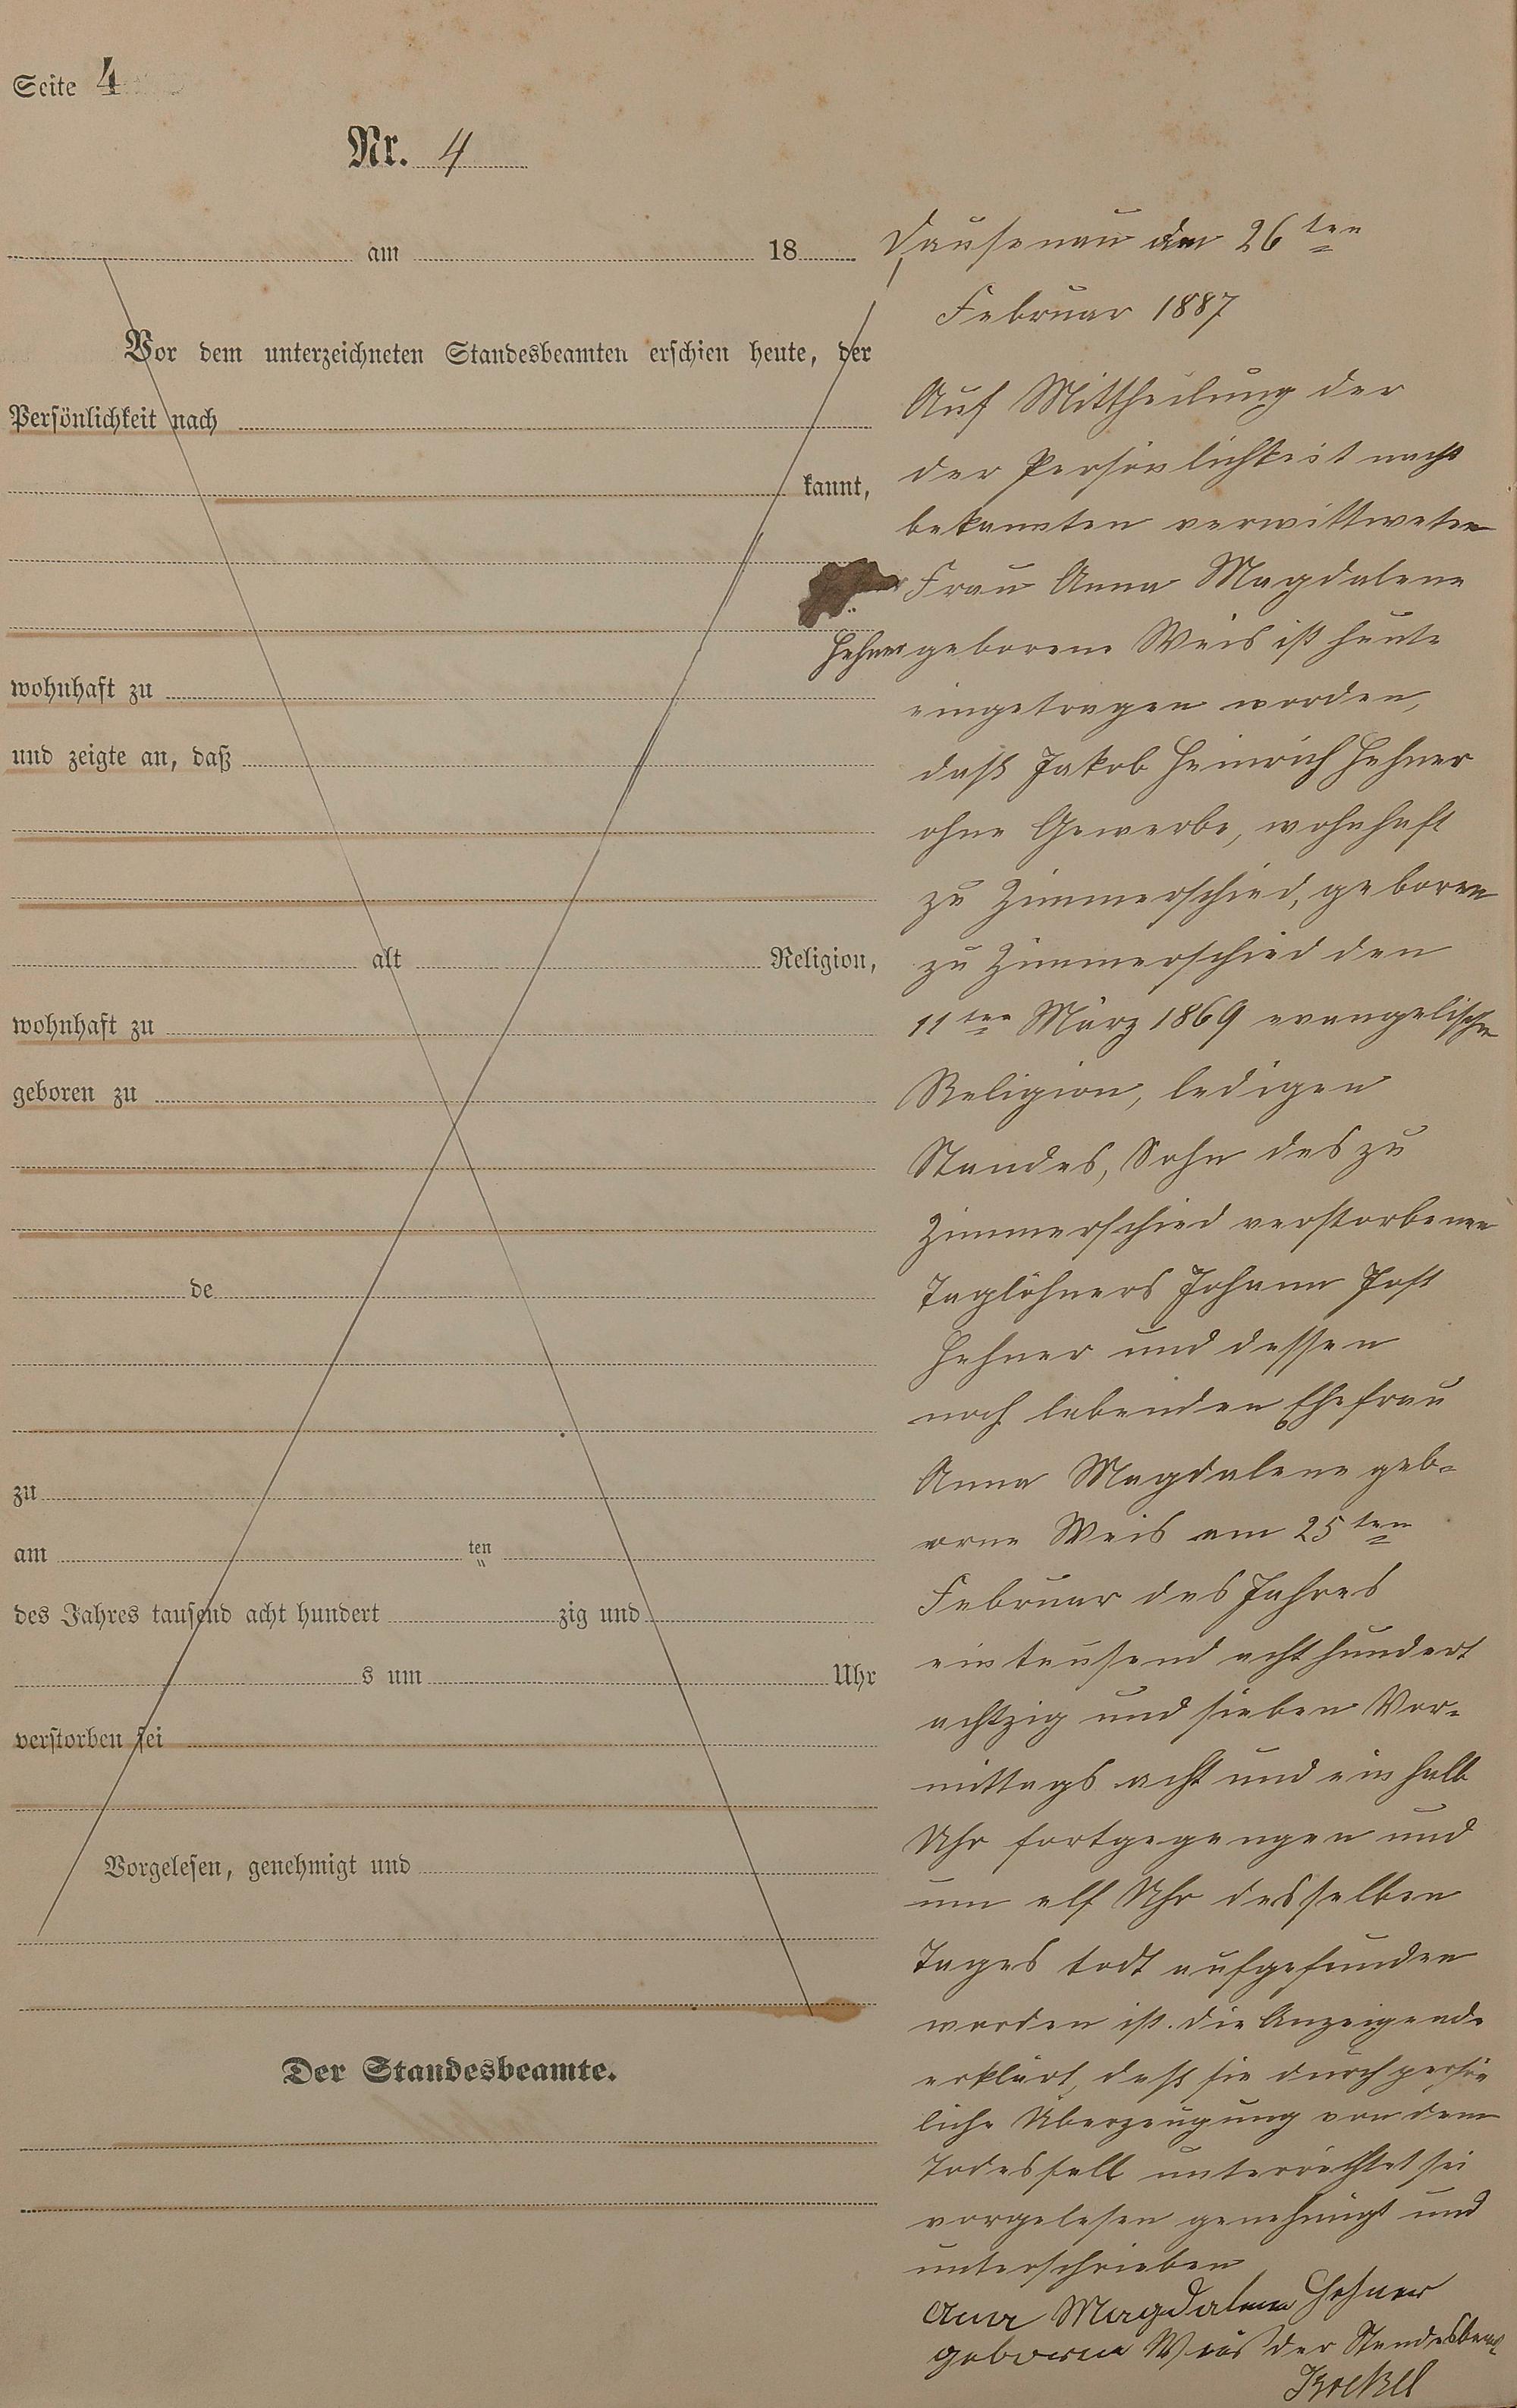 Seite 4
Nr. 4
am 18
Vor dem unterzeichneten Standesbeamten erschien heute, der
Persönlichkeit nach
kannt,
wohnhaft zu
und zeigte an, daß
alt Religion,
wohnhaft zu
geboren zu
de
zu
am ten
des Jahres tausend acht hundert zig und
s um Uhr
verstorben sei
Vorgelesen, genehmigt und
Der Standesbeamte.
Dausenau den 26ten
Februar 1887
Auf Mittheilung der
der Persönlichkeit nach
bekannten verwittweten
Frau Anna Magdalene
Hehner geborene Weis ist heute
eingetragen worden,
daß Jakob Heinrich Hehner
ohne Gewerbe, wohnhaft
zu Zimmerschied, geboren
zu Zimmerschied den
11ten März 1869 evangelischer
Religion, ledigen
Standes, Sohn des zu
Zimmerschied verstorbenen
Taglöhners Johann Jost
Hehner und dessen
noch lebenden Ehefrau
Anna Magdalene geb-
orne Weis am 25ten
Februar des Jahres
ein tausend acht hundert
achtzig und sieben Vor-
mittags acht und ein halb
Uhr fortgegangen und
um elf Uhr desselben
Tages todt aufgefunden
worden ist. die Anzeigende
erklärt, daß sie durch persön
liche Überzeugung von dem
Todesfall unterrichtet sei
vorgelesen genehmigt und
unterschrieben
Anna Magdalena Hehner
geborene Weis der Standesbeamt